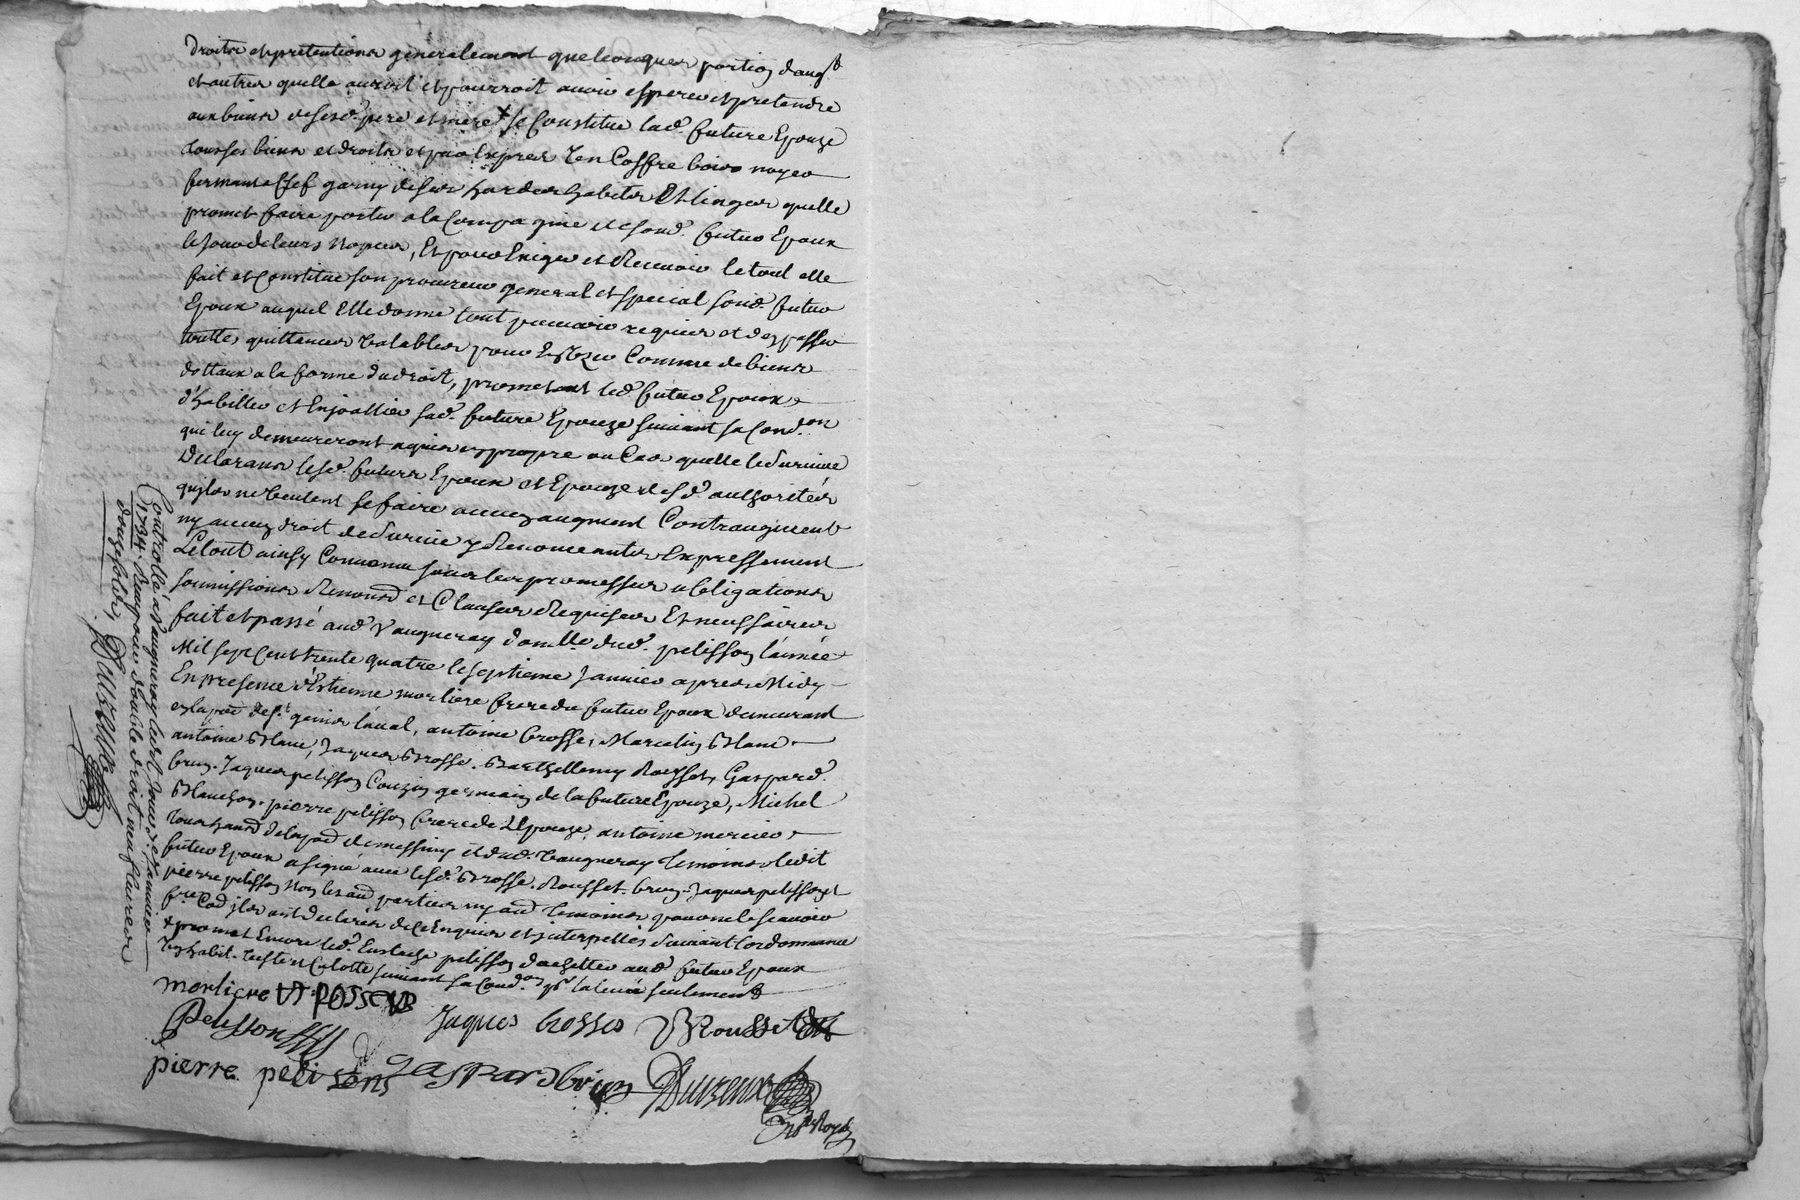 droits et pretentions generalement quelconques portion d'augt
et autres quelle auroit et pourroit avoir esperer et pretendre
aux biens desesd. pere et mere + se Constitue lad. future Epouze
tous ses biens et droits et par Expres un Coffre bois noyer
fermant a Clef garny de ses hardes habits Et linges quelle
promet faire porter a la Compagnie de sond. futur Epoux
le jour de leurs nopces, Et pour Exiger et Recevoir le tout elle
fait et Constitue son procureur general et special sond. futur
Epoux auquel Elle donne tout pouvoir requis et den passer
touttes quittances valables pour Comme de biens
dottaux a la forme du droit, promettant led. futur Epoux
d'habiller et Enjoallier sad. future Epouze suivant sa Condon
qui luy demeureront aquis et propre au Cas quelle le survive
Declarans lesd. futurs Epoux et Epouze desd. authoritées
quils ne veulent se faire aucun augment Contraugment
ny aucun droit de survie y Renonceants Expressement
Le tout ainsy Convenu sous les promesses obligations
soumissions Renond et Clauses Requises Et necessaires
fait et passé aud Vaugneray domlle dud. pelisson l'ainée
Mil sept Cent trente quatre le septieme Janvier apres Midy
En presence d'Estienne morliere frere du futur Epoux demeurant
en la pard de st genis laval, antoine brosse, Marcelin blanc
antoine blanc, Jaques brosse, Barthellemy Rousset, Gaspard
brun, Jaques pelisson Couzin germain de la future Epouze, Michel
blanchon, pierre pelisson frere de l'Epouze, antoine mercier
tous habd de la pard de messimy et dud. Vaugneray temoins ledit
futur Epoux a signé avec lesd. brosse, Rousset, brun, Jaques pelisson et
pierre pelisson non les aud parties ny aud temoins pour ne le scavoir
ils ont declarés de ce Enquis et interpellés suivant l'ordonnance
+ promet Encore led. Eustache pelisson d'achetter aud futur Epoux
un habit veste et Culotte suivant sa Condon pr la levée seulement
morliere Rosset
Pelisson Jaques brosses B Rousset
pierre pelisons gaspard brun Duvernoy
Nore Royal
Controllé a vaugneray le dit jour de janvier
1734. Receu pour double droit neuf livres
douze sols